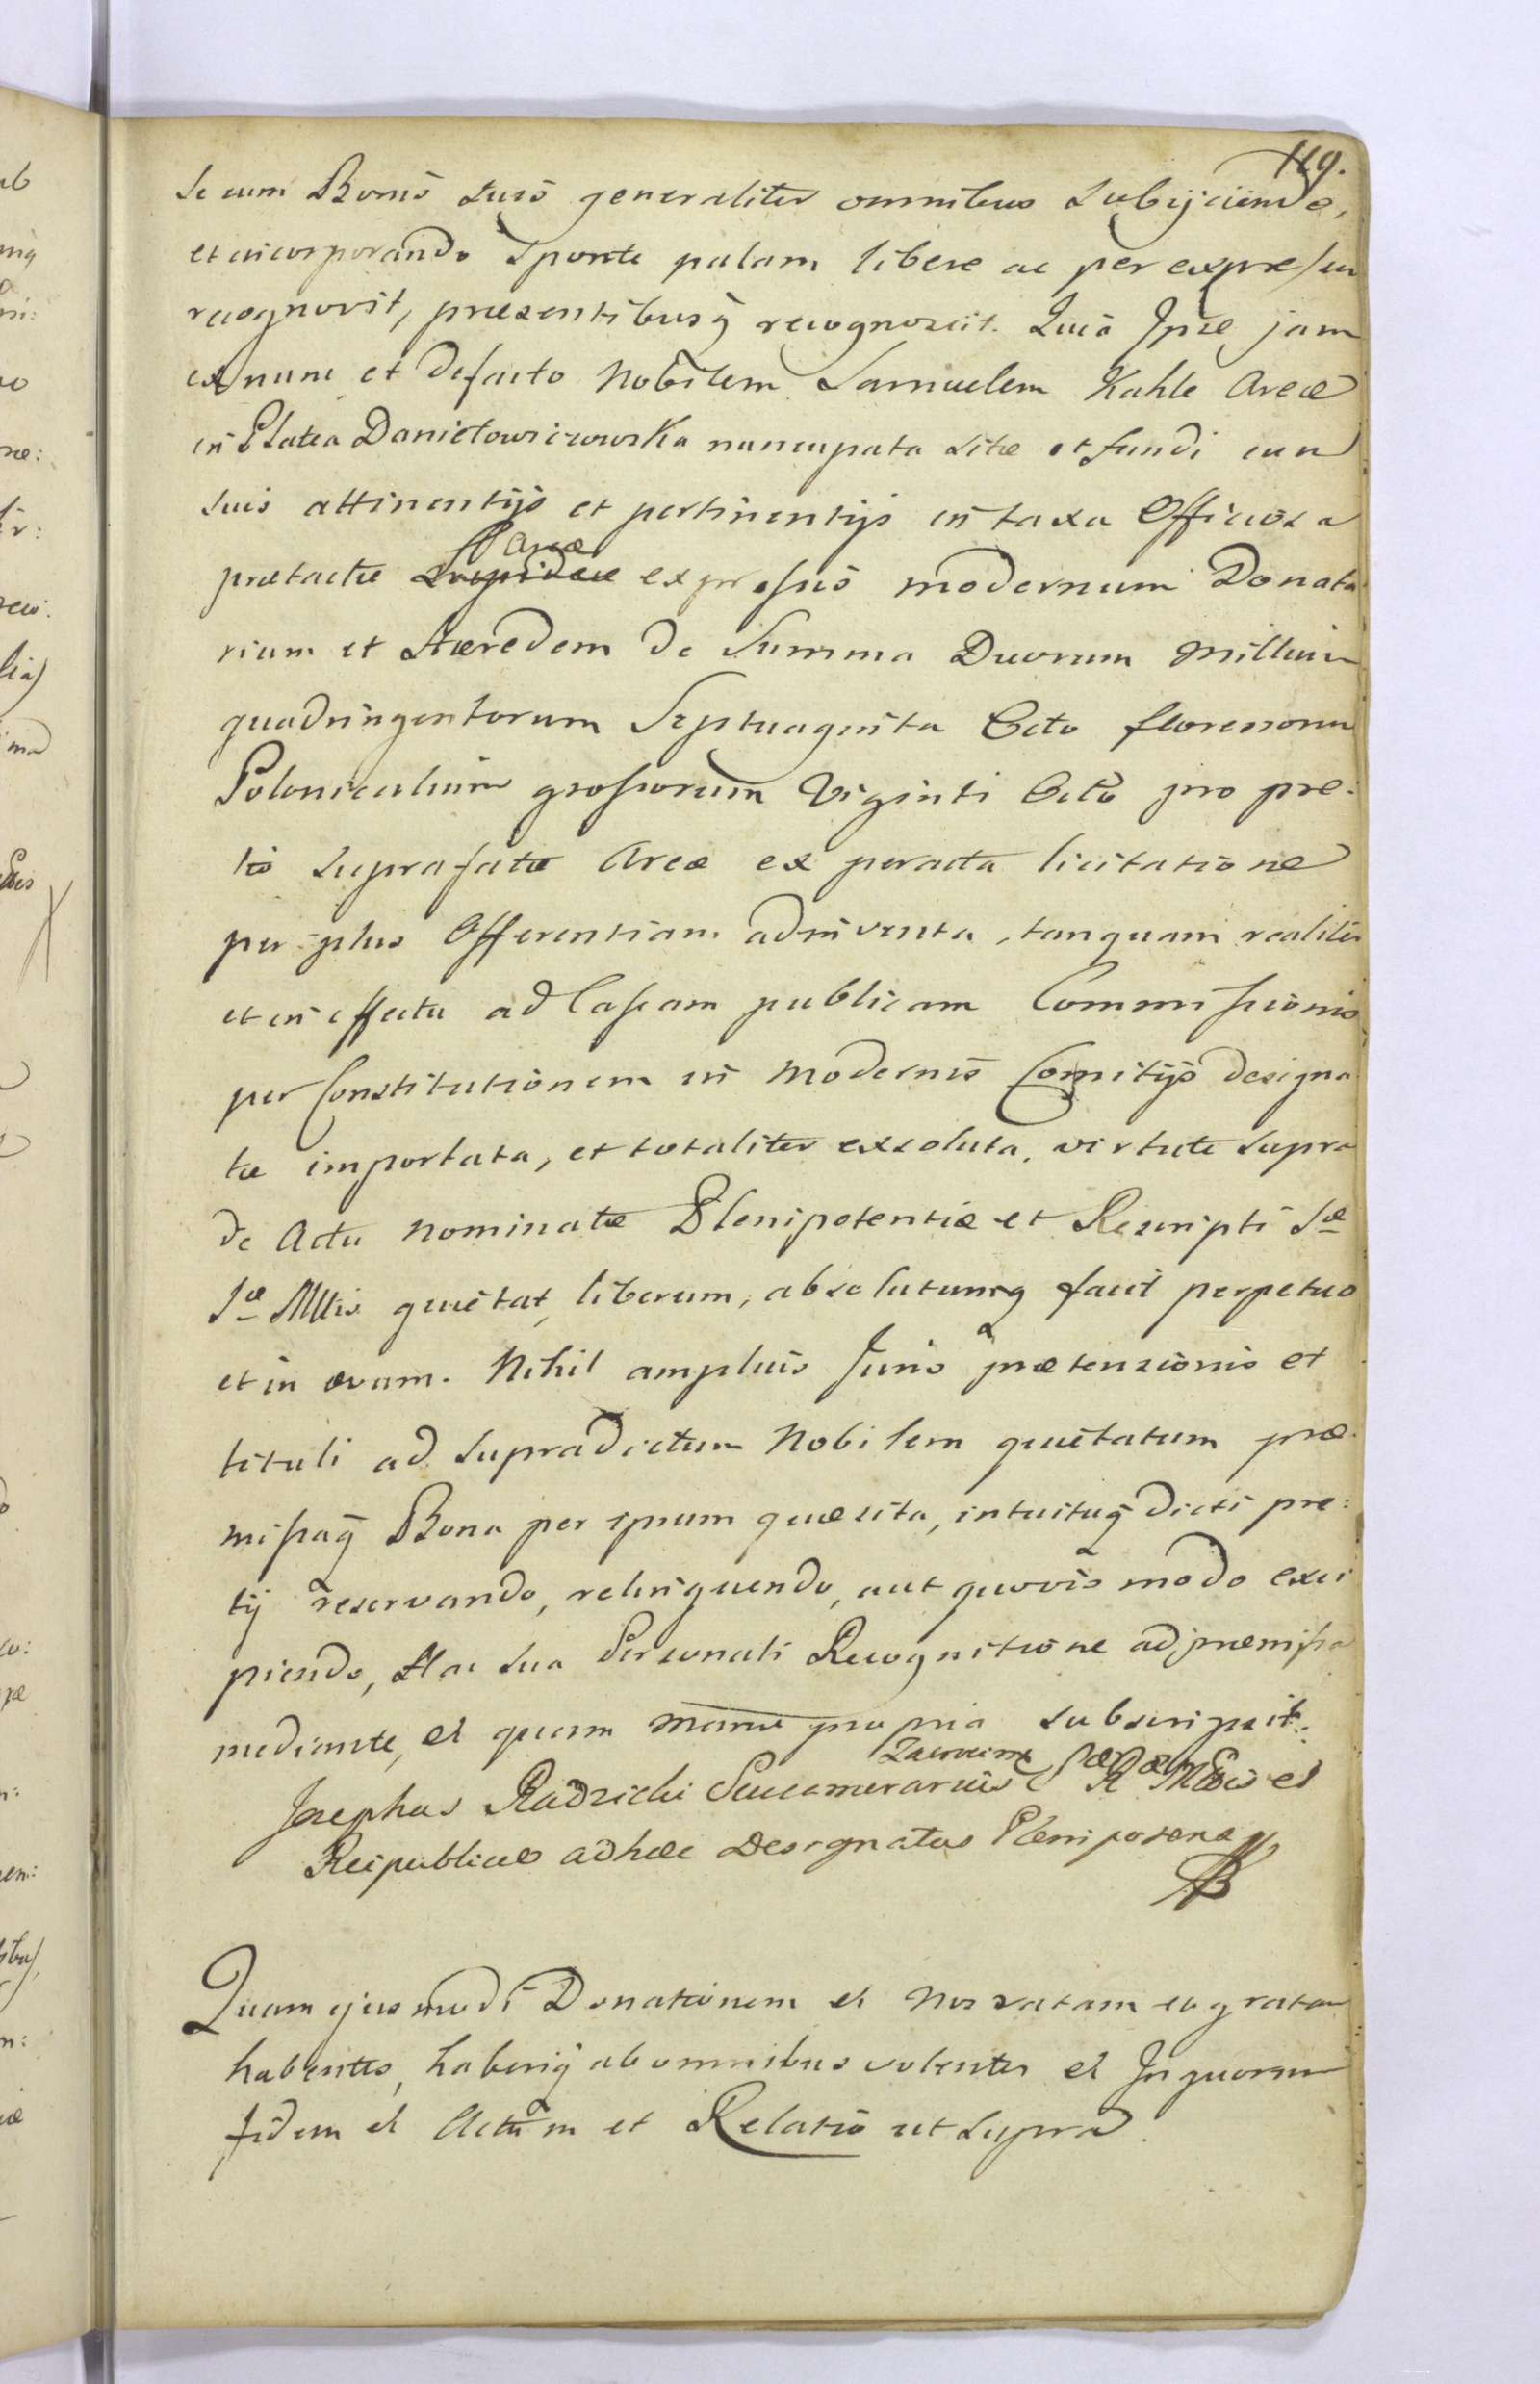 119.
Se cum Bonis Suis generaliter omnibus Subijciendo,
et incorporando Sponte palam libere ac per expressum
recognovit, praesentibusq recognoscit. Quia Ipse jam
ex nunc et defacto Nobilem Samuelem Kahle Areae
in Platea Daniełowiczowska nuncupata Sitae et fundi cum
Suis attinentijs et pertinentijs in taxa Officiosa
Areae
praetactae Lapideae expressis modernum Donata
rium et Haeredem de Summa Duorum Millium
quadringentorum Septuaginta Octo florenorum
Polonicalium grossorum Viginti Octo pro pre:
tio Suprafatae Areae ex peracta licitatione
per plus Offerentiam adinventa, tanquam realiter
et in effectu ad Cassam publicam Commissionis
per Constitutionem in Modernis Comitijs designa
tae importata, et totaliter exsoluta, virtute Supra
de Actu nominatae Plenipotentiae et Rescripti Sae
Rae Mttis quietat, liberum, absolutumq facit perpetuo
et in aevum. Nihil amplius Juris praetensionis et
tituli ad Supradictum Nobilem quietatum prae
missaq Bona per ipsum quaesita, intuituq dicti pre:
tij reservando, relinquendo, aut quovis modo exci
piendo, Hac Sua Personali Recognitione ad praemissa
mediante, et quam manu propria Subscripsit.
Josephus Radzicki Succamerarius Zacrocimen Sae Rae Mttis et
Reipublicae ad haec Designatus Plenipotens
Quam ejusmodi Donationem et Nos ratam et gratam
habentes, haberiq ab omnibus volentes et In quorum
fidem et Actum et Relatio ut Supra.